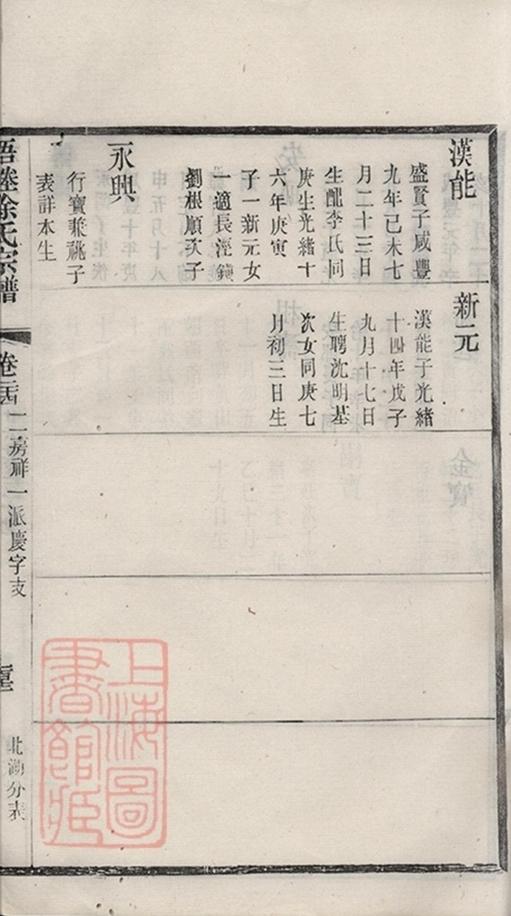 漢能
盛賢子咸豐
九年己未七
月二十三日
生配李氏同
庚生光緒十
六年庚寅
子一新元女
一適長涇鎮
劉根順次子
永興
行寶兼祧子
表詳水生
新元
漢能子光緒
十四年戊子
九月十七日
生聘沈明基
次女同庚七
月初三日生
徐氏宗譜
卷
二房祥一派慶字支
北湖分表
上海圖
書館藏